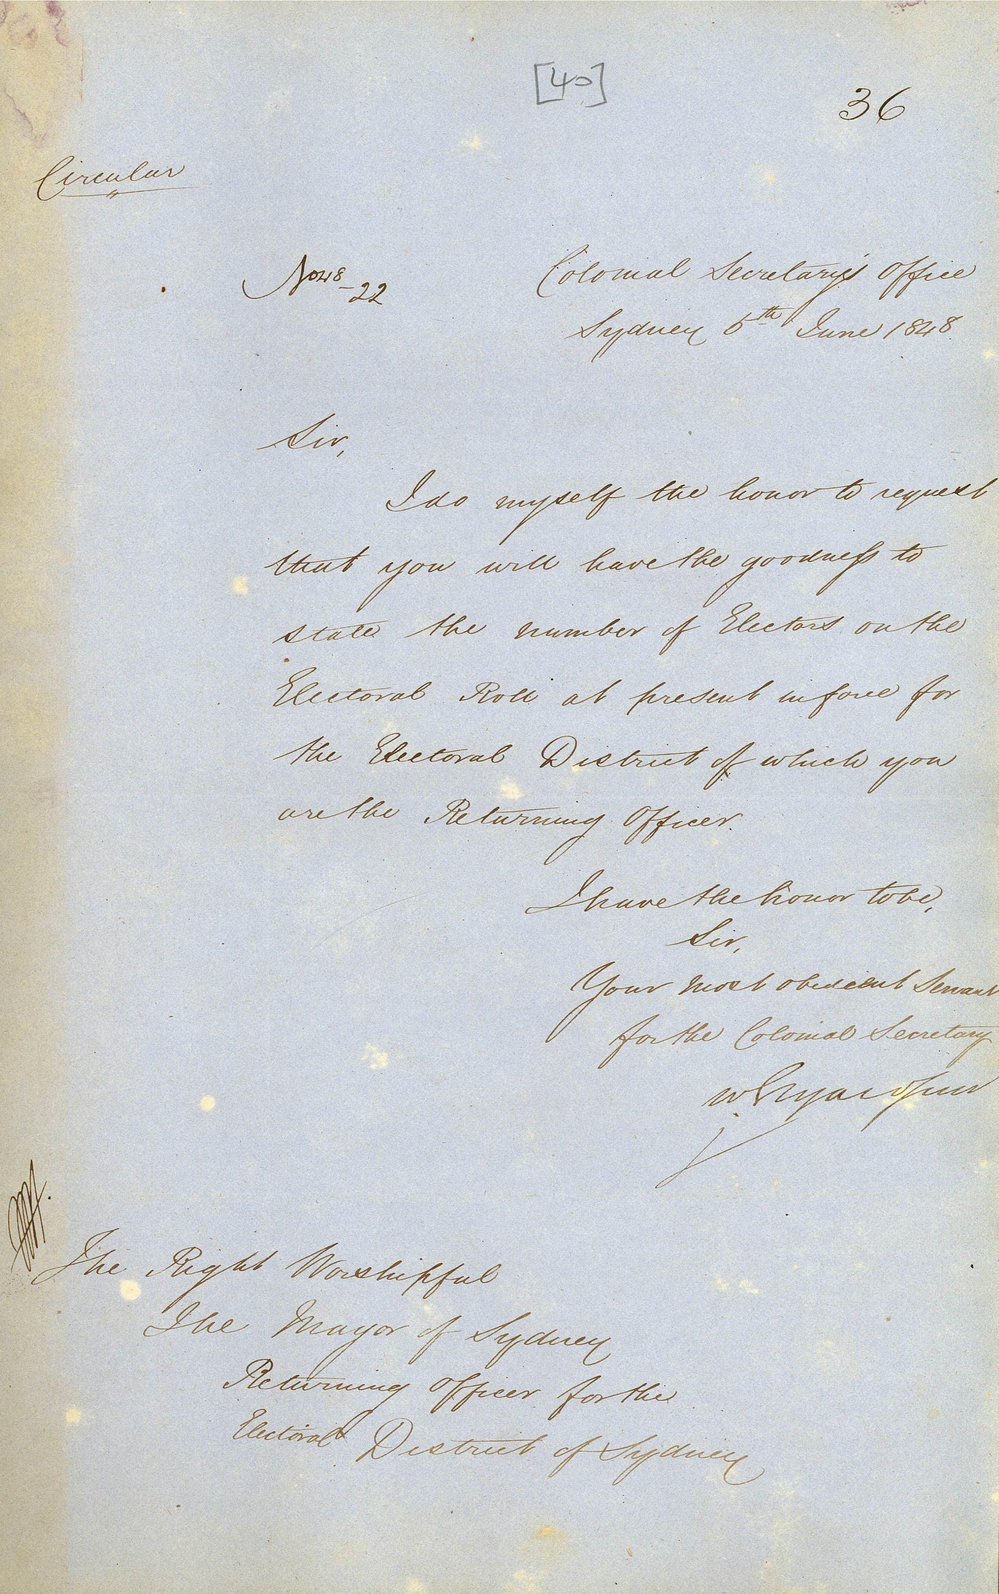 [40]
36
Circular
No 48-22
Colonial Secretary's Office
Sydney 5th June 1848
Sir,
I do myself the honor to request
that you will have the goodness to
state the number of Electors on the
Electoral Roll at present in force for
the Electoral District of which you
are the Returning Officer.
I have the honor to be,
Sir,
Your most obedient Servant
for the Colonial Secretary
W Elyard Junr
The Right Worshipful
The Mayor of Sydney
Returning Officer for the
Electoral District of Sydney